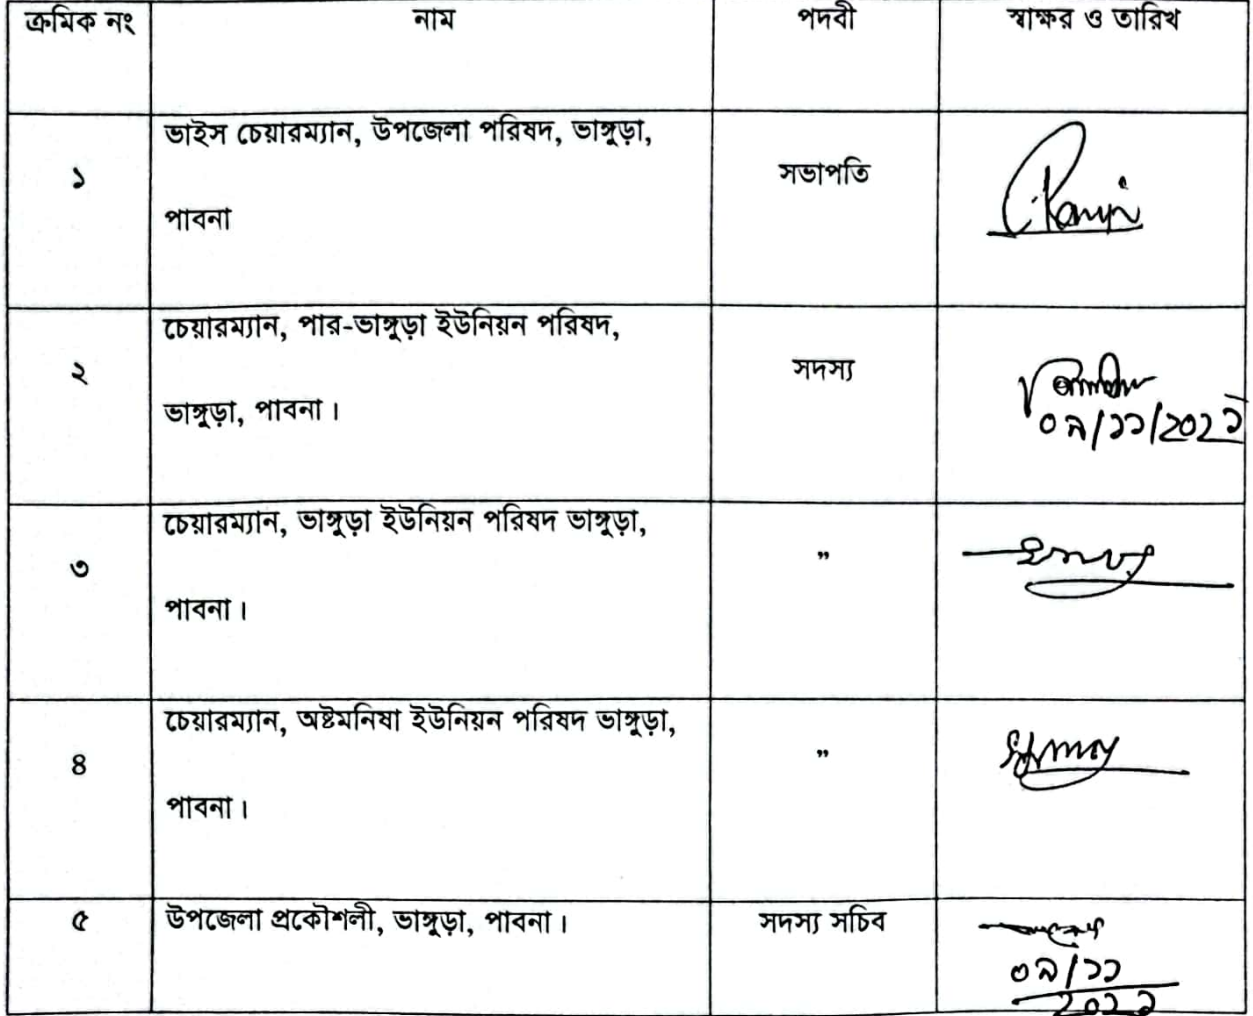 ক্রমিক নং নাম পদবী স্বাক্ষর ও তারিখ
ভাইস চেয়ারম্যান, উপজেলা পরিষদ, ভাঙ্গুড়া,
১ সভাপতি
পাবনা
চেয়ারম্যান, পার-ভাঙ্গুড়া ইউনিয়ন পরিষদ,
২ সদস্য
ভাঙ্গুড়া, পাবনা।
চেয়ারম্যান, ভাঙ্গুড়া ইউনিয়ন পরিষদ ভাঙ্গুড়া,
৩ ”
পাবনা।
চেয়ারম্যান, অষ্টমনিষা ইউনিয়ন পরিষদ ভাঙ্গুড়া,
৪ ”
পাবনা।
৫ উপজেলা প্রকৌশলী, ভাঙ্গুড়া, পাবনা। সদস্য সচিব
০৯/১১